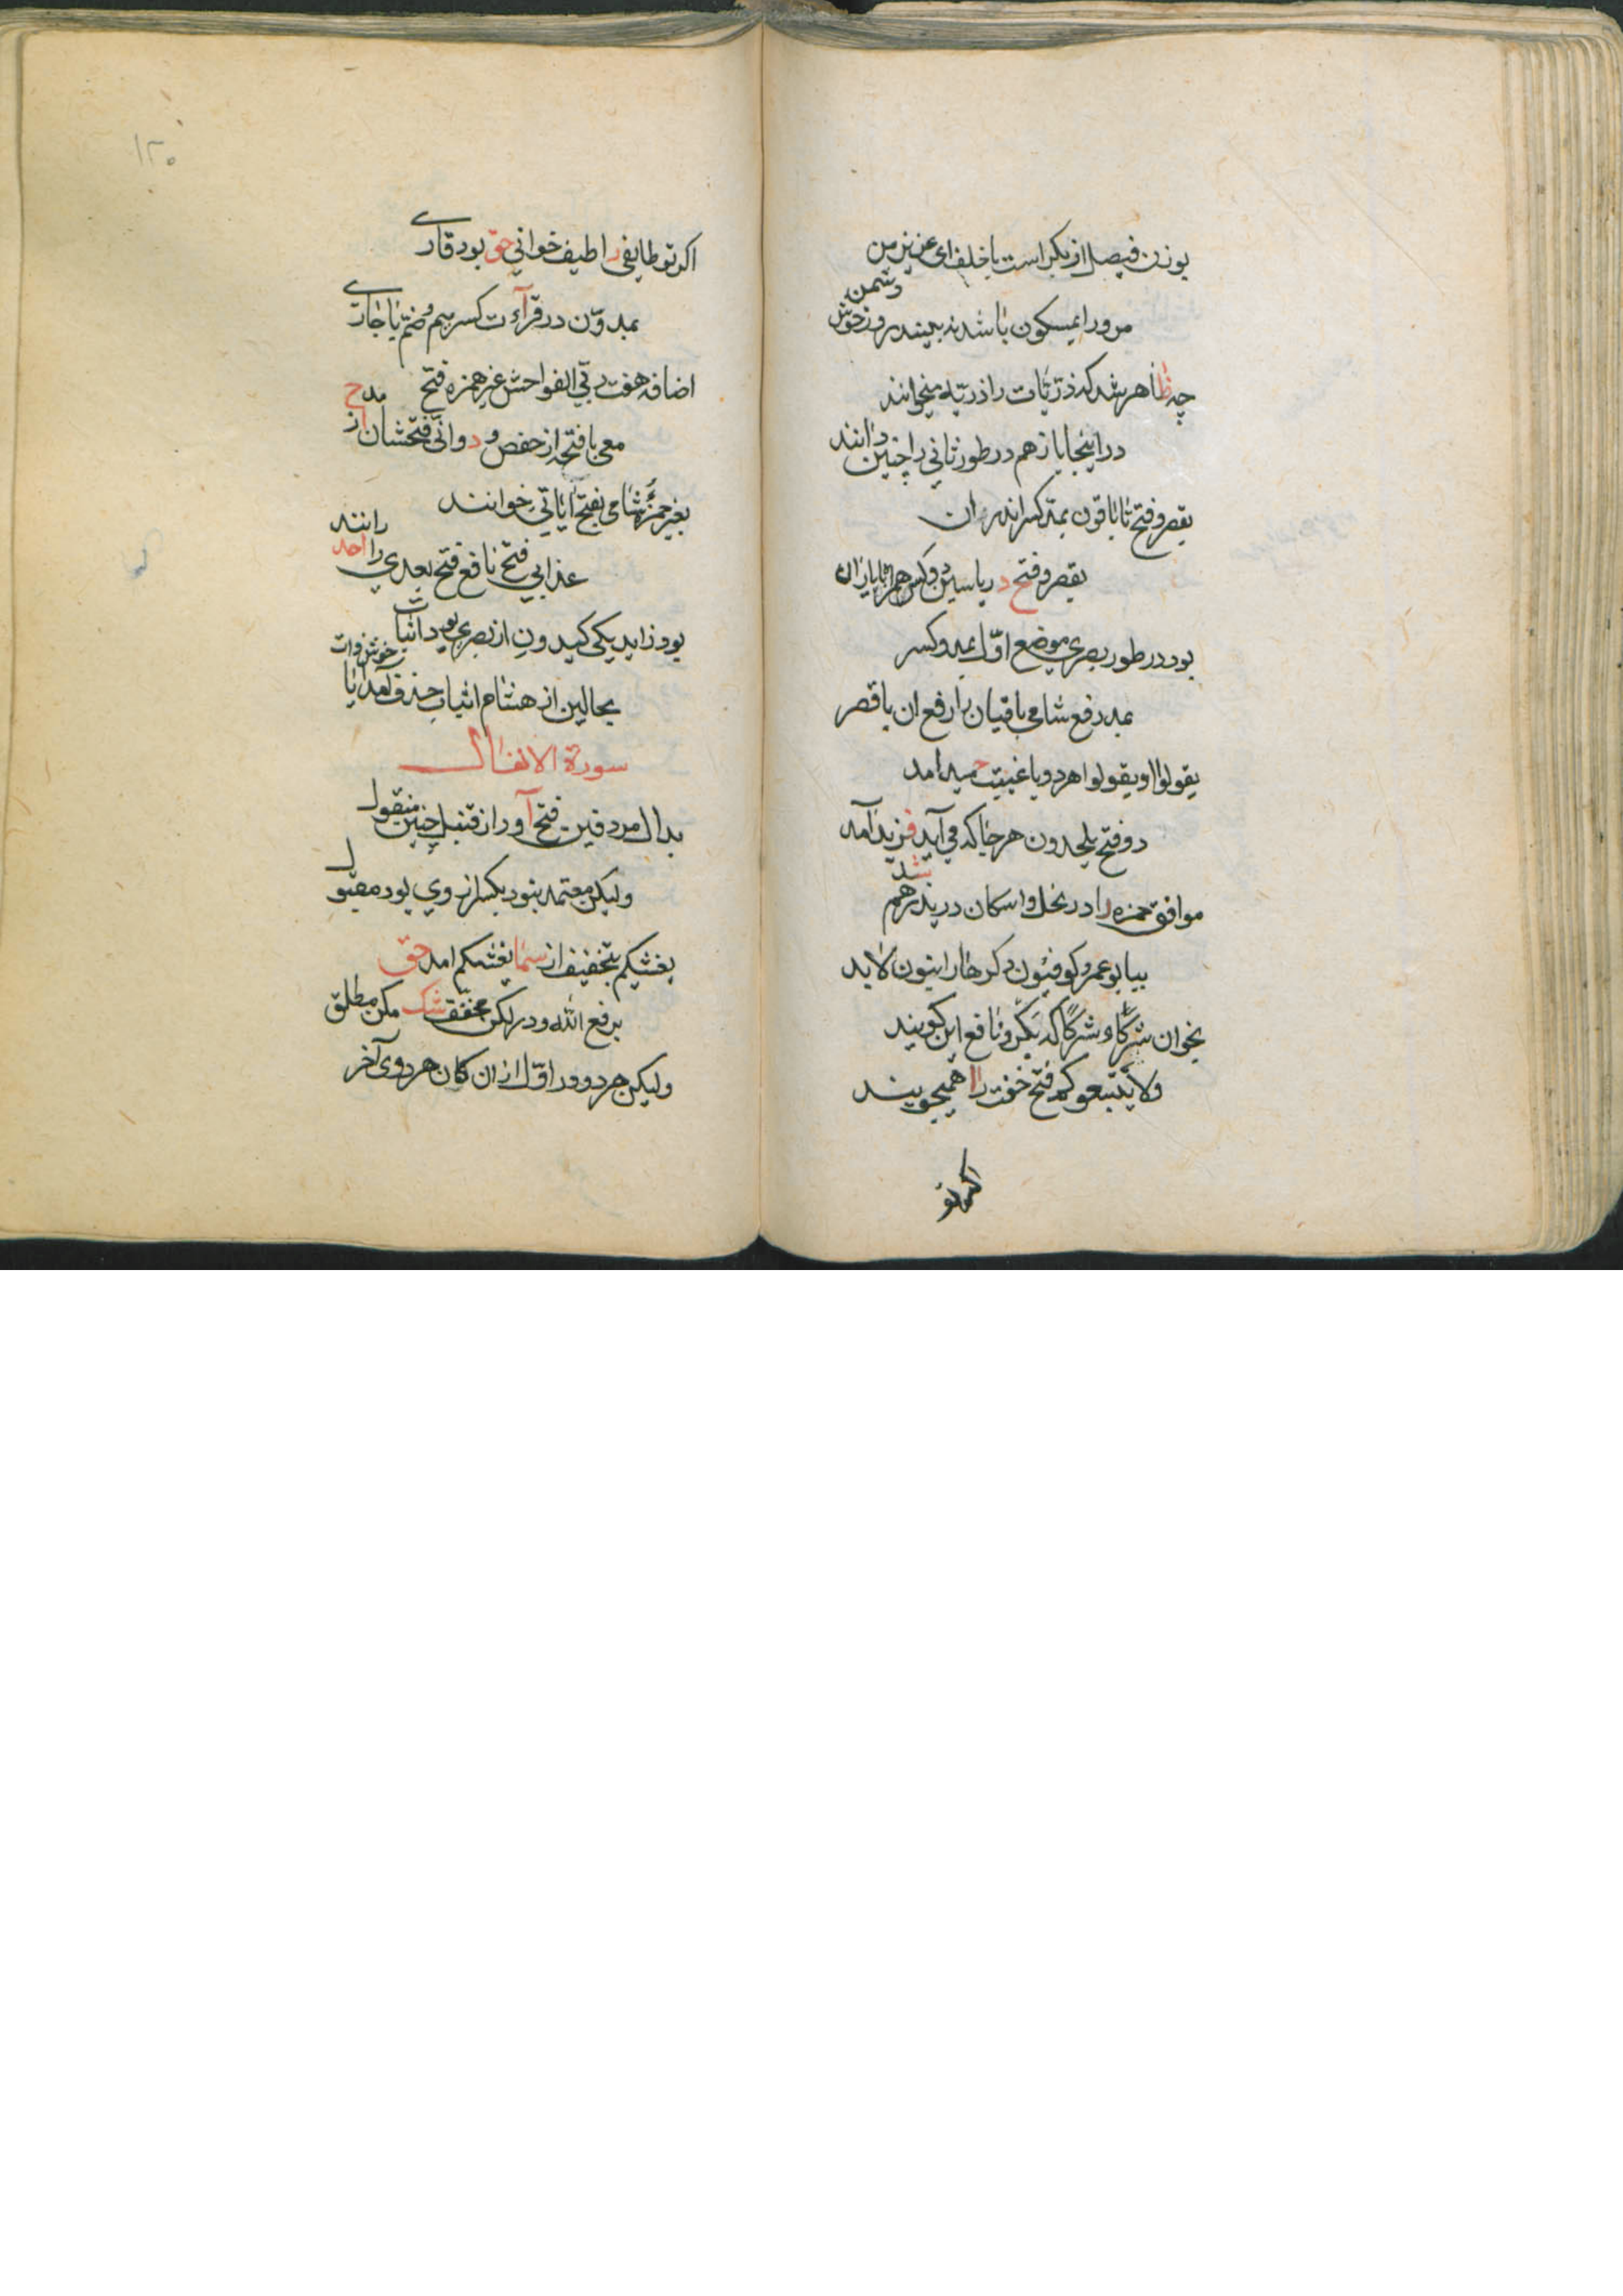 بوزن فیصل از بکر است با خلف ای عزیز من
مرورا بسکون باشد نه بیند روز خوش دشمن
چه ظاهر شد که ذریات را ذریة میخوانند
در اینجا باز هم در طور ثانی را چنین دانند
بقصر و فتح تا باقون بمد کسر اندر ان
بقصر و فتح د ریاسین
بود در طور بصری موضع اول بمد و کسر
بمد رفع شامی باقیان را رفع ان با قصر
یقولوا او یقولوا هر دو با غیبت حمید امد
دو فتح یلحدون هر جا که می آید فزید آمد
موافق حمزه را در نحل و اسکان در یذرهم شد
بیا بو عمرو کوفیون دکرها را بنون لابد
بخوان شرکاء و شرکا که بکر و نافع این کویند
ولا یتبعو کم فتح خفت را همیجویند
اکر تو
۱۲۰
اکر تو طایفی را طیف خوانی حق بود قاری
یمدون در قرآءت کسر میم و ضم یا جاری
اضافه هفت ربی الفواحش غیر همزه فتح مدح
معی با فتحه از حفص و د وانی فتحشان از
بغیر حمزه شامی بفتح آیاتی خوانند
عذابی فتح نافع فتح بعدی را احد رانند
بود زاید یکی کیدون از بصری بود اثبات
بحالین از هشام اثبات حذف آمد آیا خوش ذات
سورة الانفال
بدال مردفین فتح آور از قنبل چنین منقول
ولیکن معتمد نبود بکسر از وی بود مقبول
یغشیکم بتخفیف از سما یغشیکم امد حق
برفع الله و در لکن مخفف شک مکن مطلق
ولیکن هر دو ور اول از ان کان هر دوی آخر